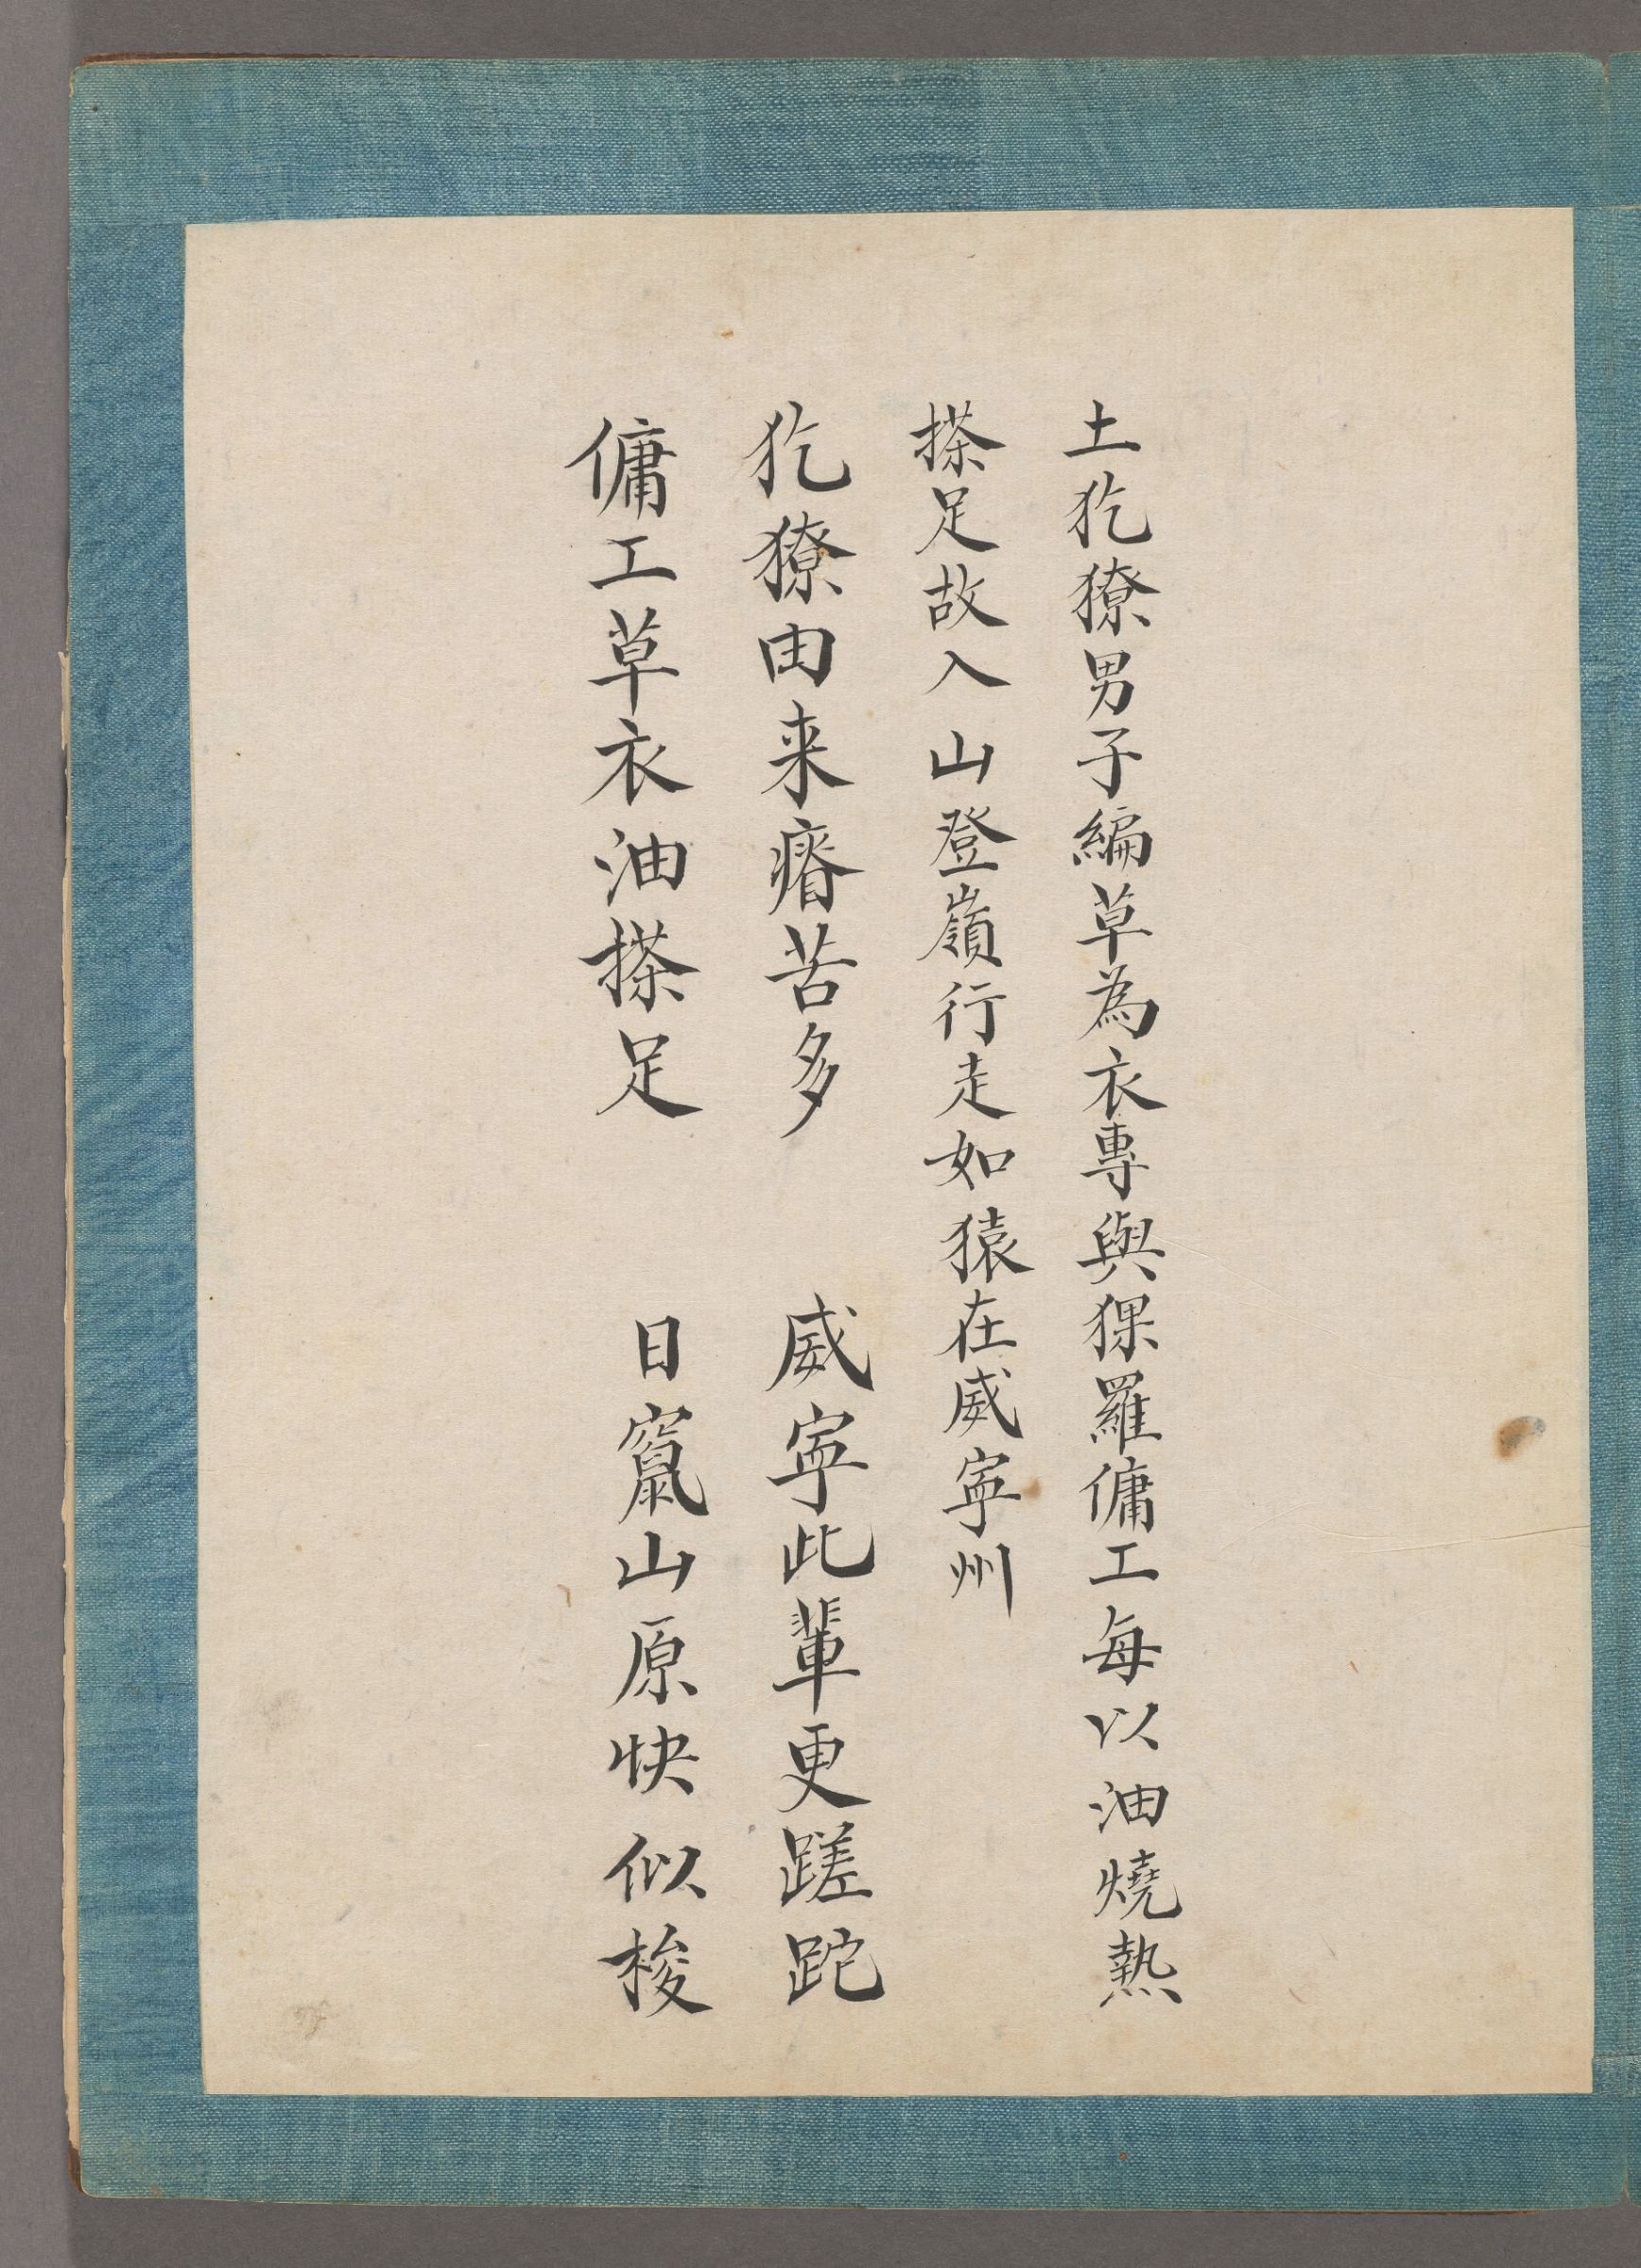 土犵獠男子編草為衣專與猓羅傭工每以油燒熱
搽足故入山登嶺行走如猿在威寧州
犵獠由来瘠苦多 威寧此輩更蹉跎
傭工草衣油搽足 日竄山原快似梭